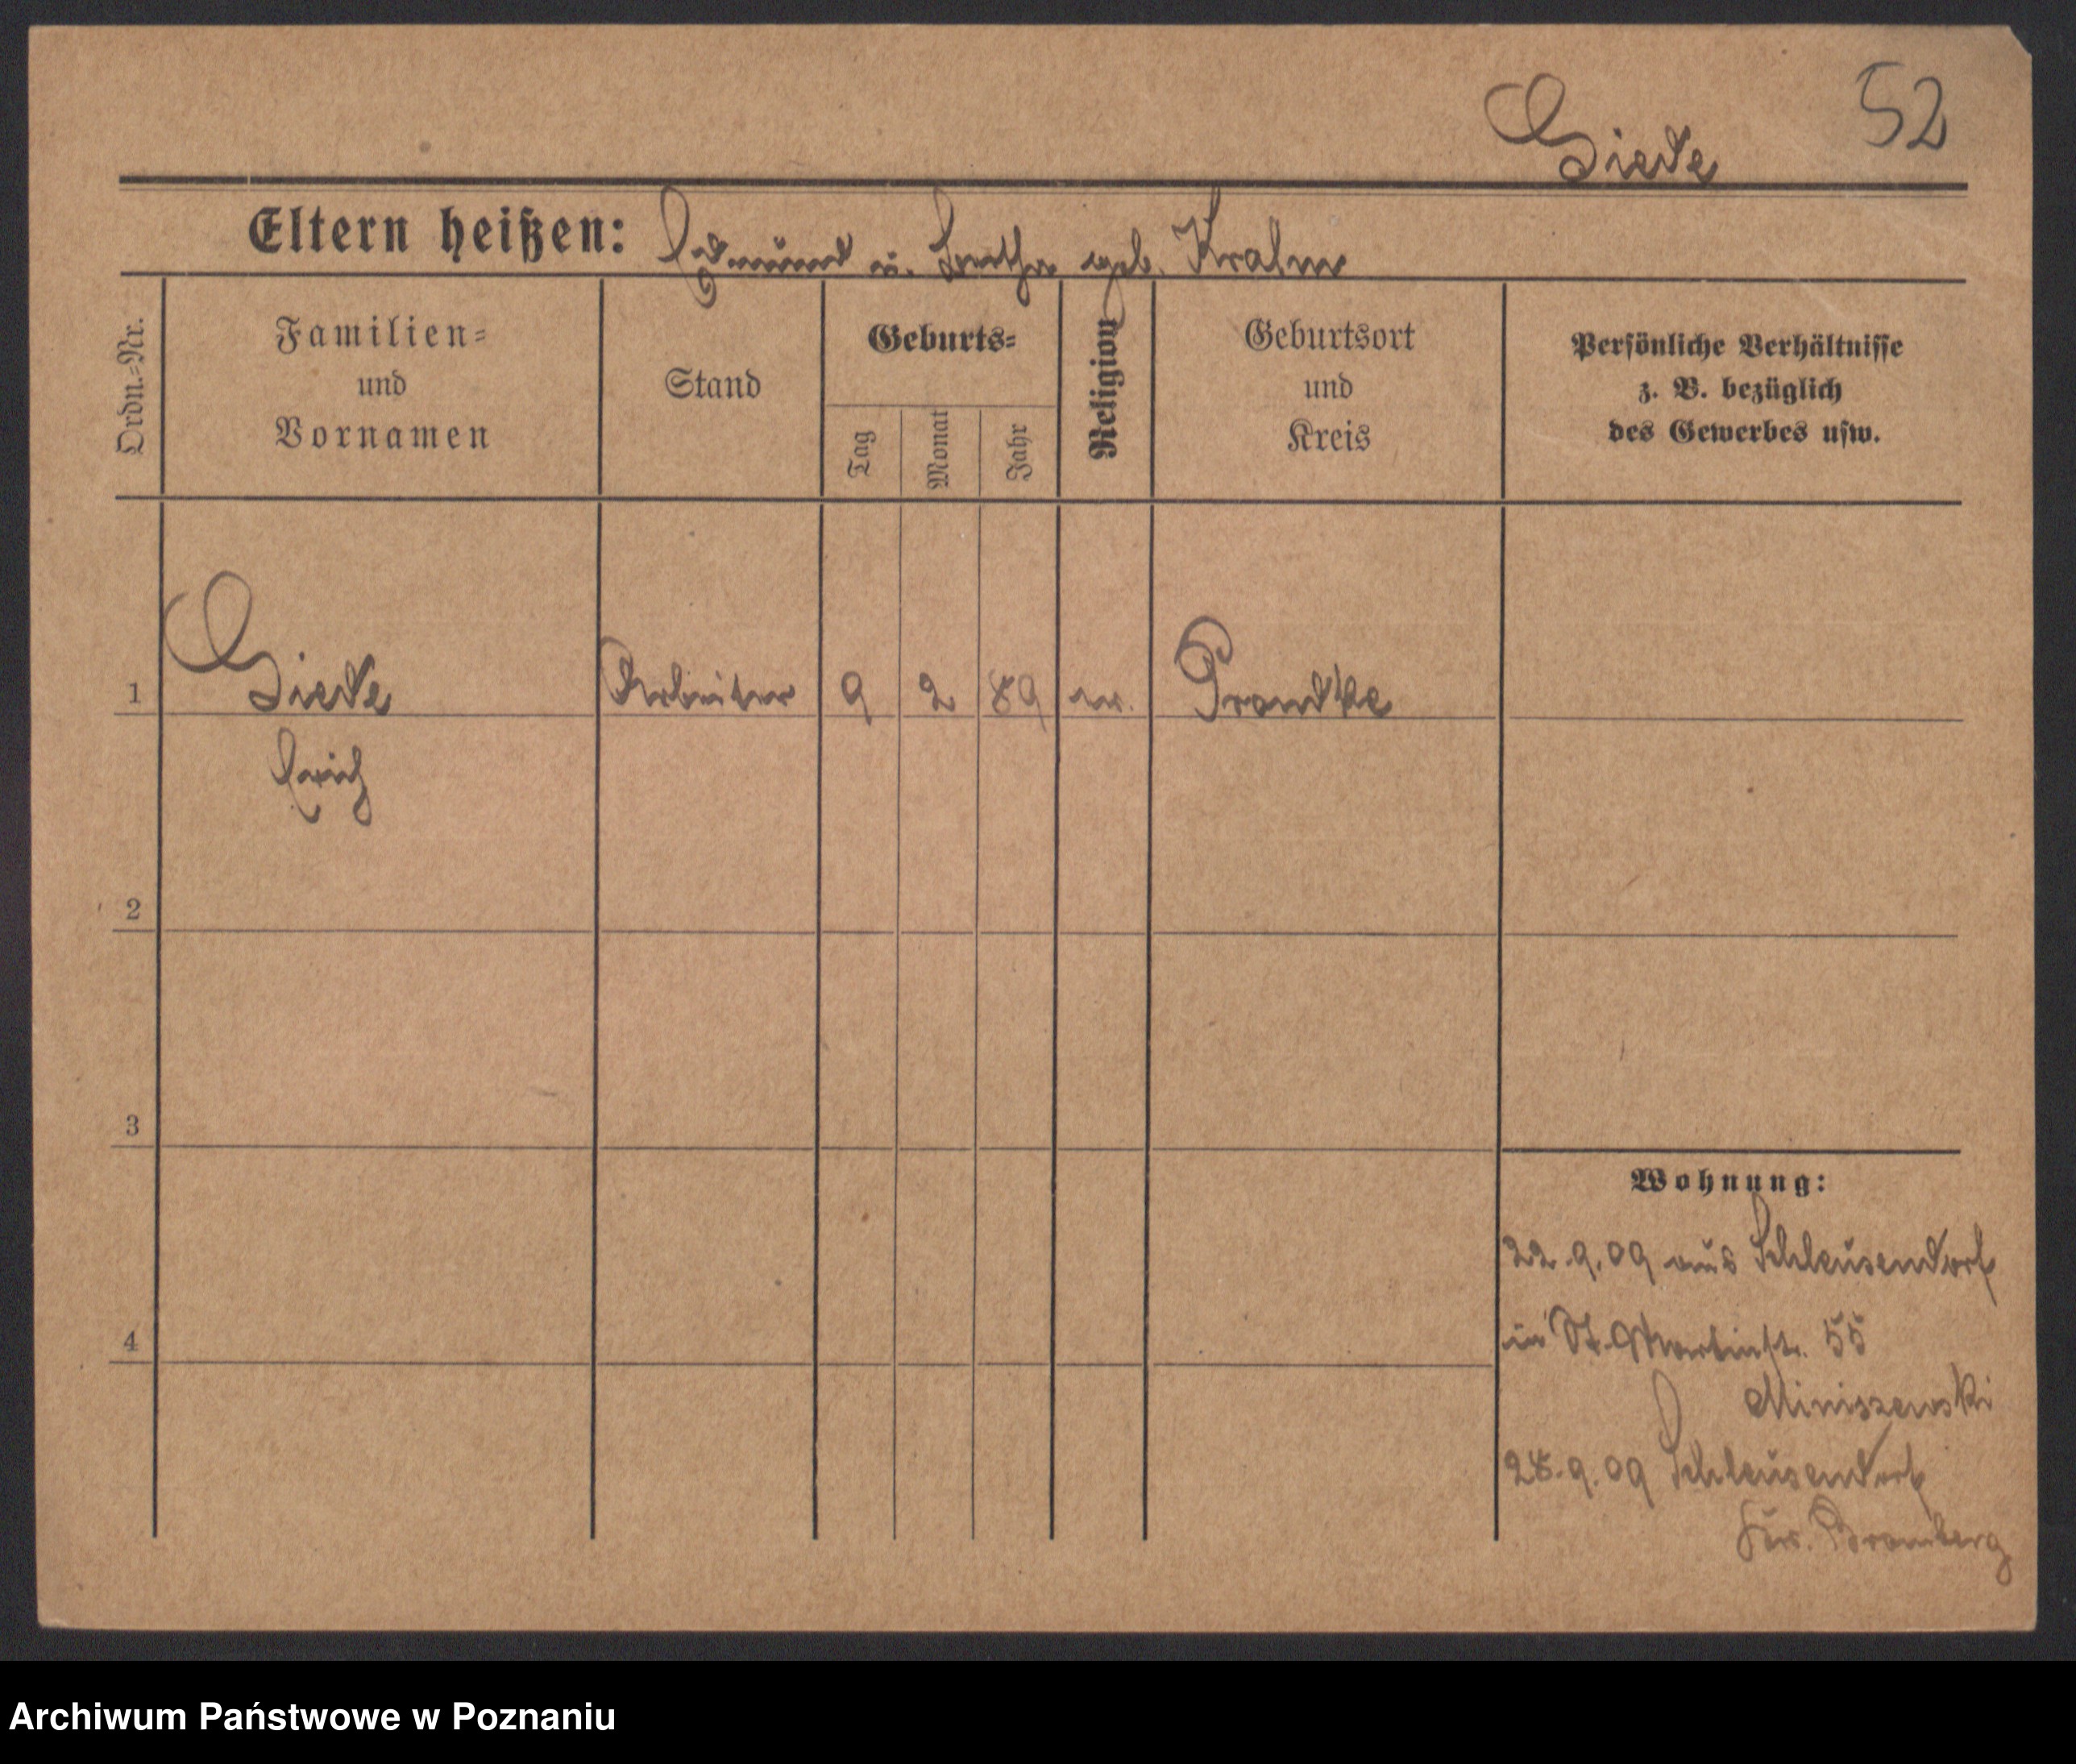 Giede 52
Eltern heißen: Edmund u. Bertha geb. Krahn
Ordn.-Nr.
Familien-
und
Vornamen
Stand
Geburts-
Tag
Monat
Jahr
Religion
Geburtsort
und
Kreis
Persönliche Verhältnisse
z. B. bezüglich
des Gewerbes usw.
1 Giede Arbeiter 9 2 89 ev. Prondke
Erich
2
3
4
Wohnung:
22.9.09 aus Schleusendorf
in St. Martinstr. 55
Miniszewski
28.9.09 Schleusendorf
Bromberg
Archiwum Państwowe w Poznaniu